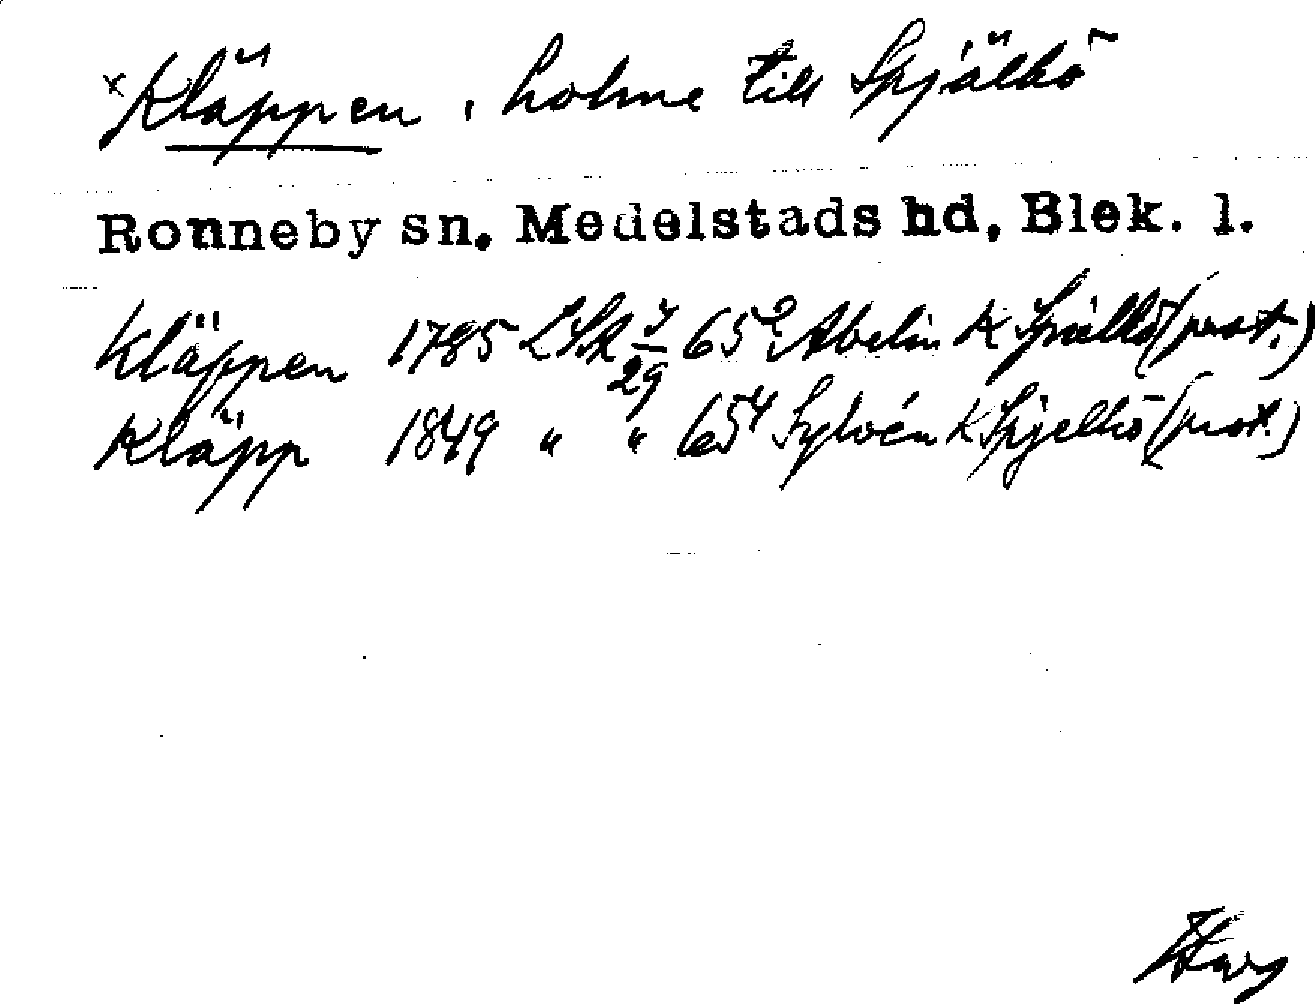 ×Kläppen, holme till Spjälkö
Ronneby sn. Medelstads hd, Blek. l.
Kläppen 1785 LSk 7/29 65² Abelin K Spiälkö (prot.)
Kläpp 1849 " " 65⁴ Sylvén K Spjelkö (prot.)